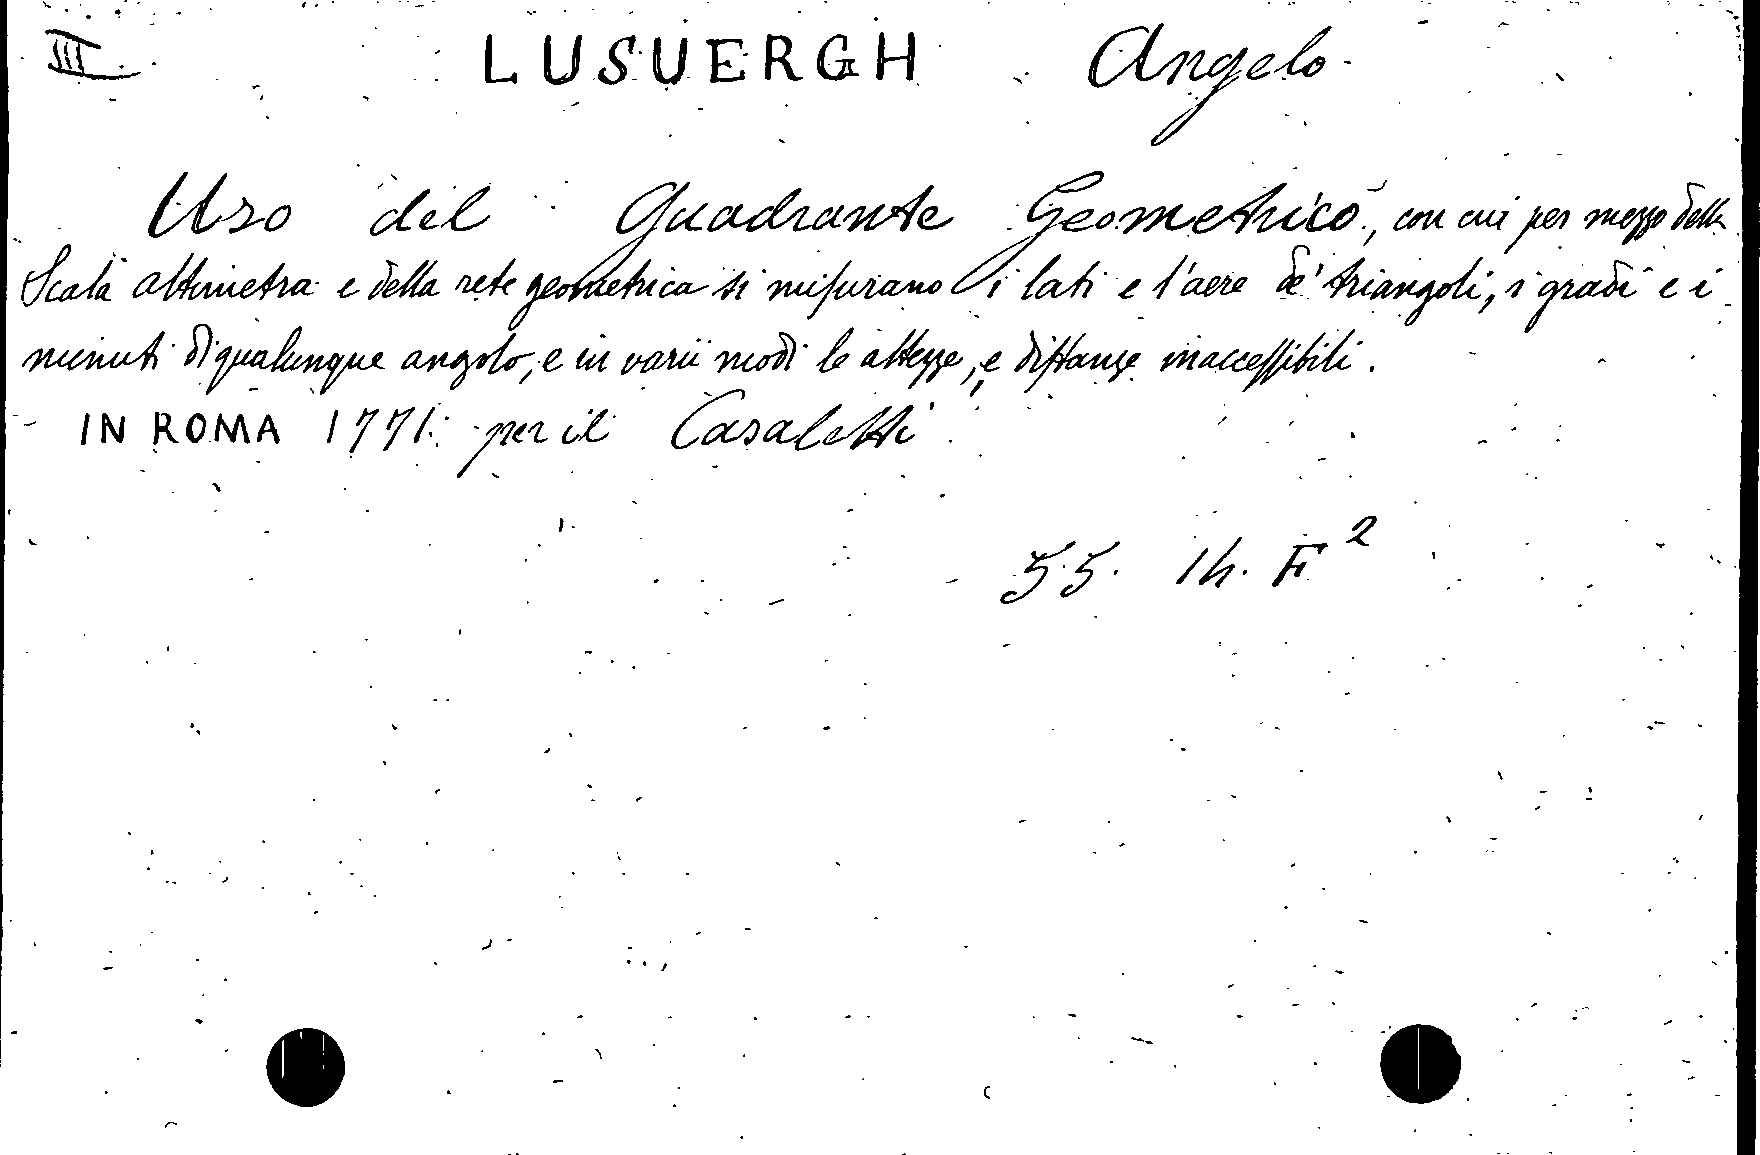 III
LUSUERGH Angelo
Uso del Quadrante Geometrico, con cui per mezzo della
Scala altimetra e della rete geometrica si miſurano i lati e l'aere de' triangoli, i gradi e i
minuti di qualunque angolo, e in varii modi le altezze, e diſtanze inacceſſibili.
IN ROMA 1771. per il Casaletti
55. Ih. F²